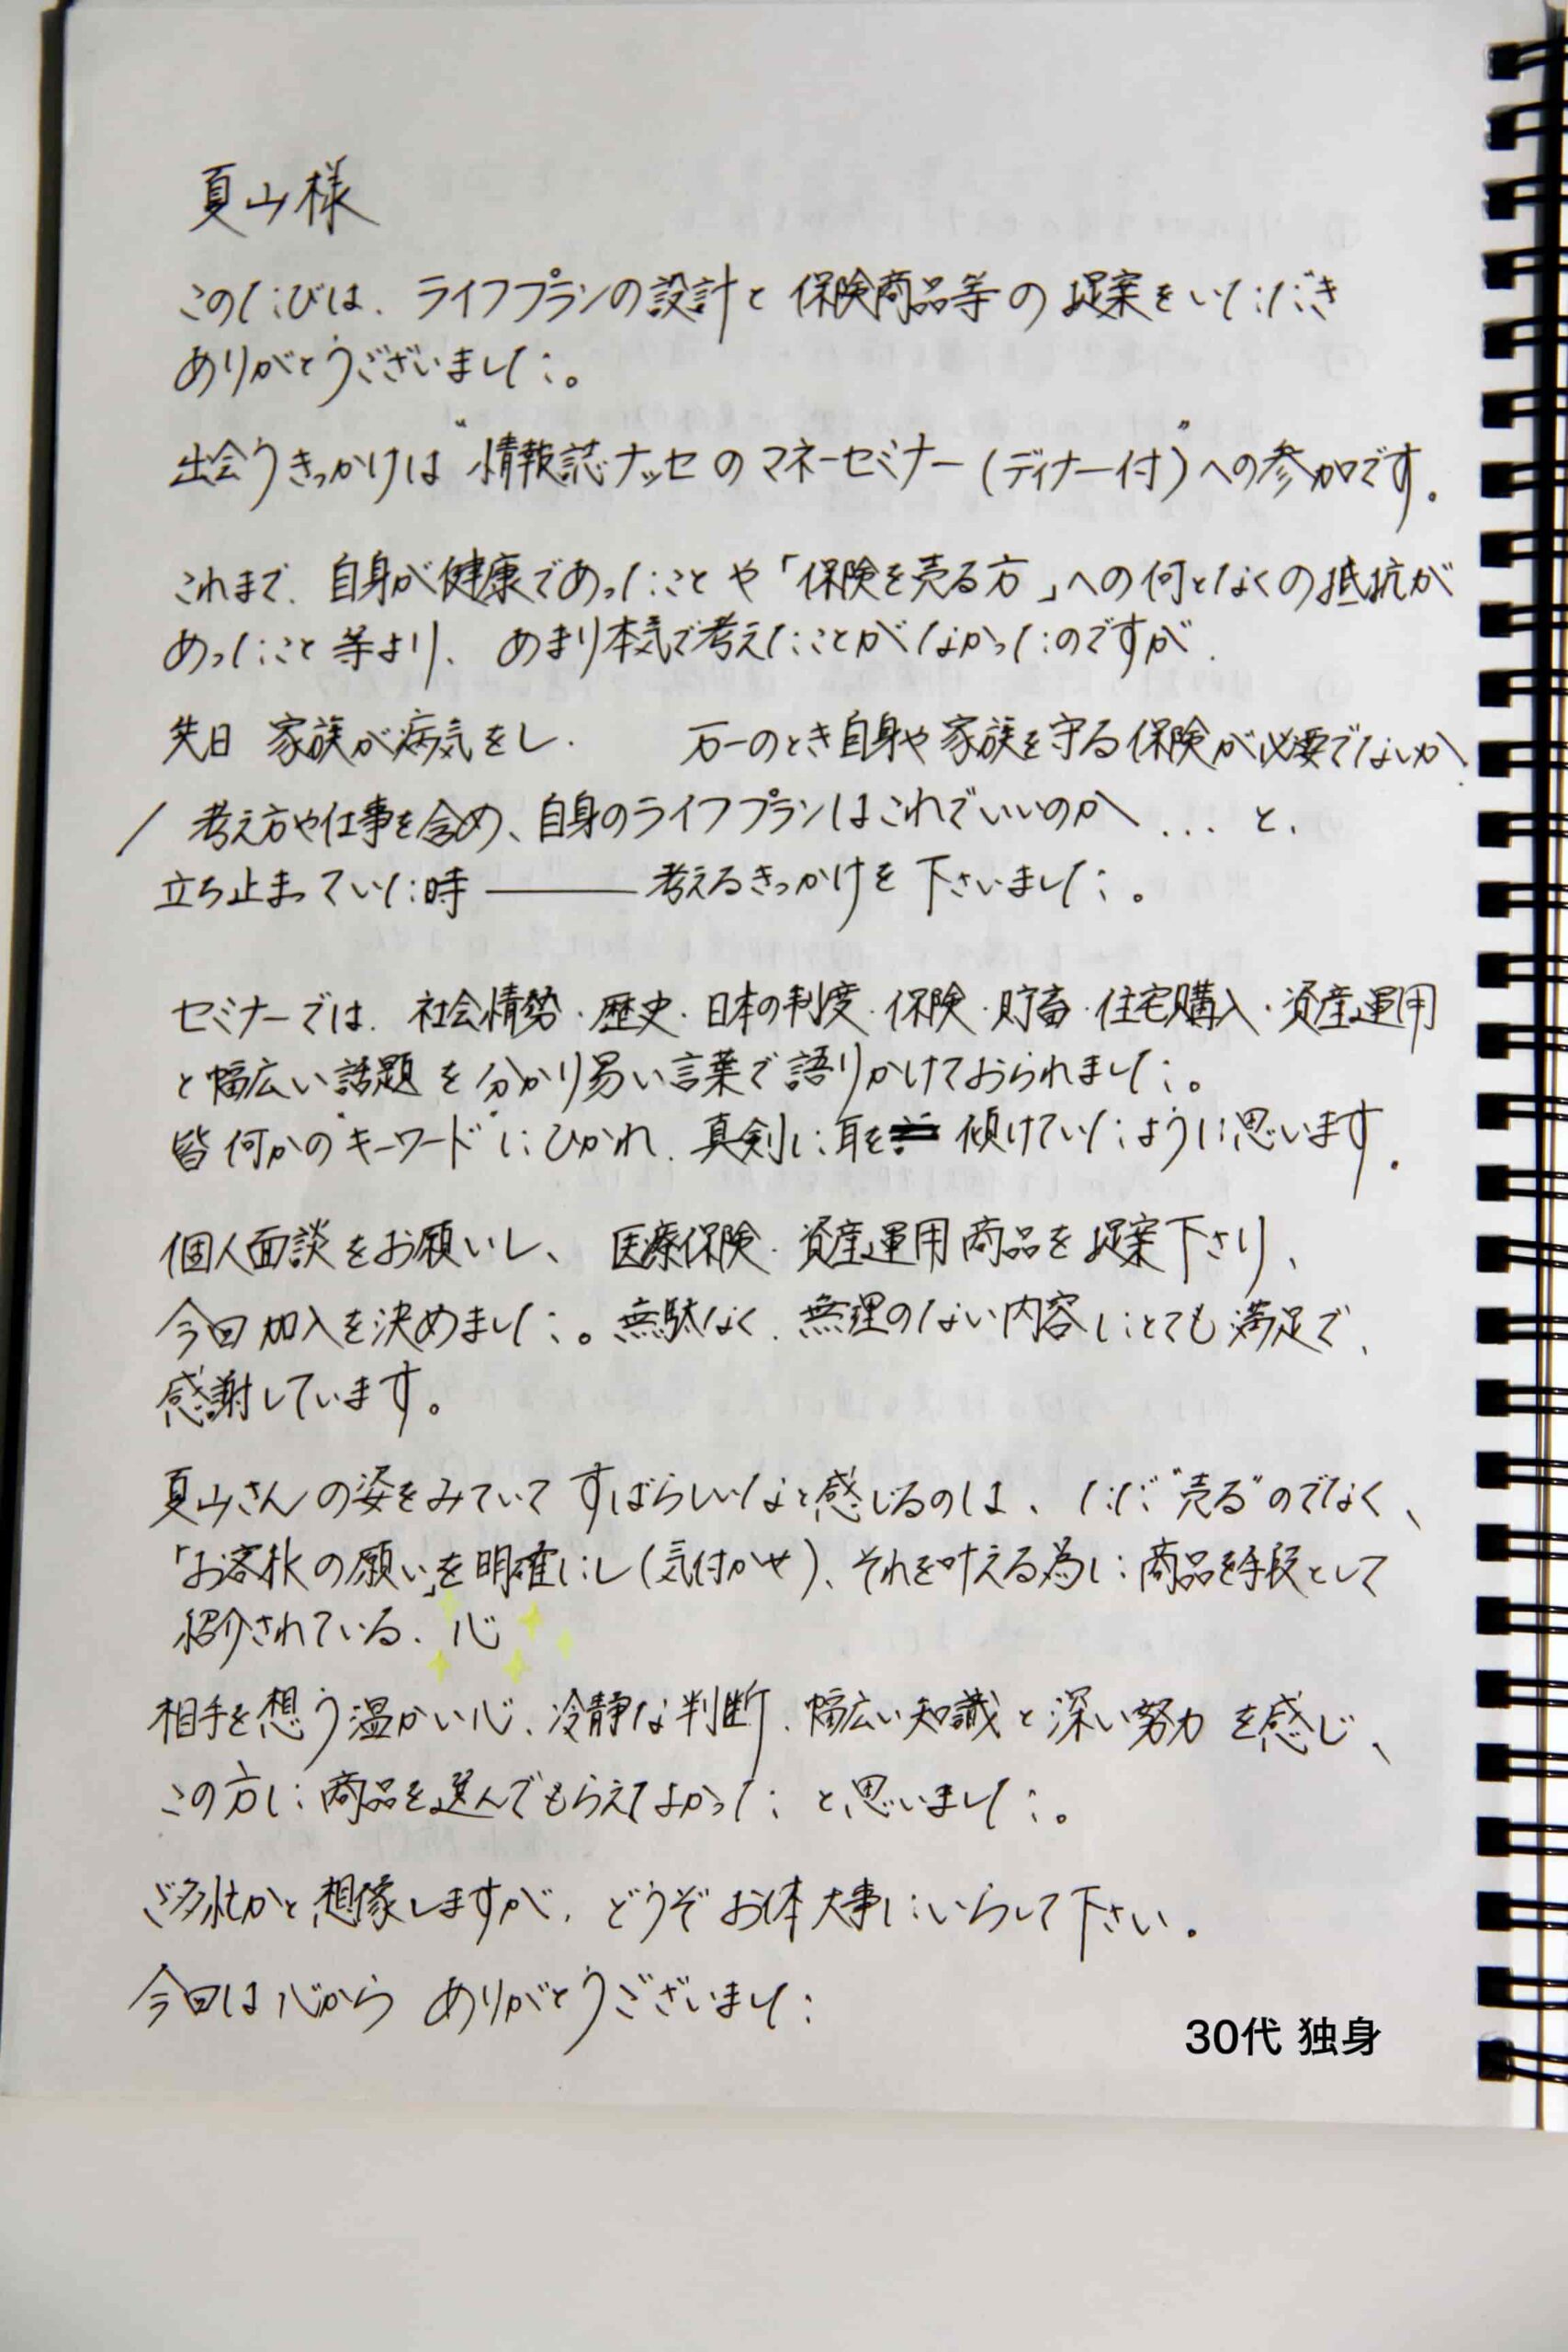 夏山様
このたびは、ライフプランの設計と保険商品等の提案をいただき
ありがとうございました。
出会うきっかけは“情報誌ナッセのマネーセミナー(ディナー付)”への参加です。
これまで、自身が健康であったことや「保険を売る方」への何となくの抵抗が
あったこと等より、あまり本気で考えたことがなかったのですが、
先日 家族が病気をし、 万一のとき自身や家族を守る保険が必要でないか、
/ 考え方や仕事を含め、自身のライフプランはこれでいいのか ... と、
立ち止まっていた時 ――― 考えるきっかけを下さいました。
セミナーでは、社会情勢・歴史・日本の制度・保険・貯畜・住宅購入・資産運用
と幅広い話題を分かり易い言葉で語りかけておられました。
皆何かの“キーワード”にひかれ、真剣に耳を傾けていたように思います。
個人面談をお願いし、医療保険・資産運用商品を提案下さり、
今回加入を決めました。無駄なく、無理のない内容にとても満足で、
感謝しています。
夏山さんの姿をみていてすばらしいなと感じるのは、ただ“売る”のでなく、
「お客様の願い」を明確にし(気付かせ)、それを叶える為に商品を手段として
紹介されている、心
相手を想う温かい心、冷静な判断、幅広い知識と深い努力を感じ、
この方に商品を選んでもらえてよかった と思いました。
ご多忙かと想像しますが、どうぞお体大事にいらして下さい。
今回は心から ありがとうございました
30代 独身